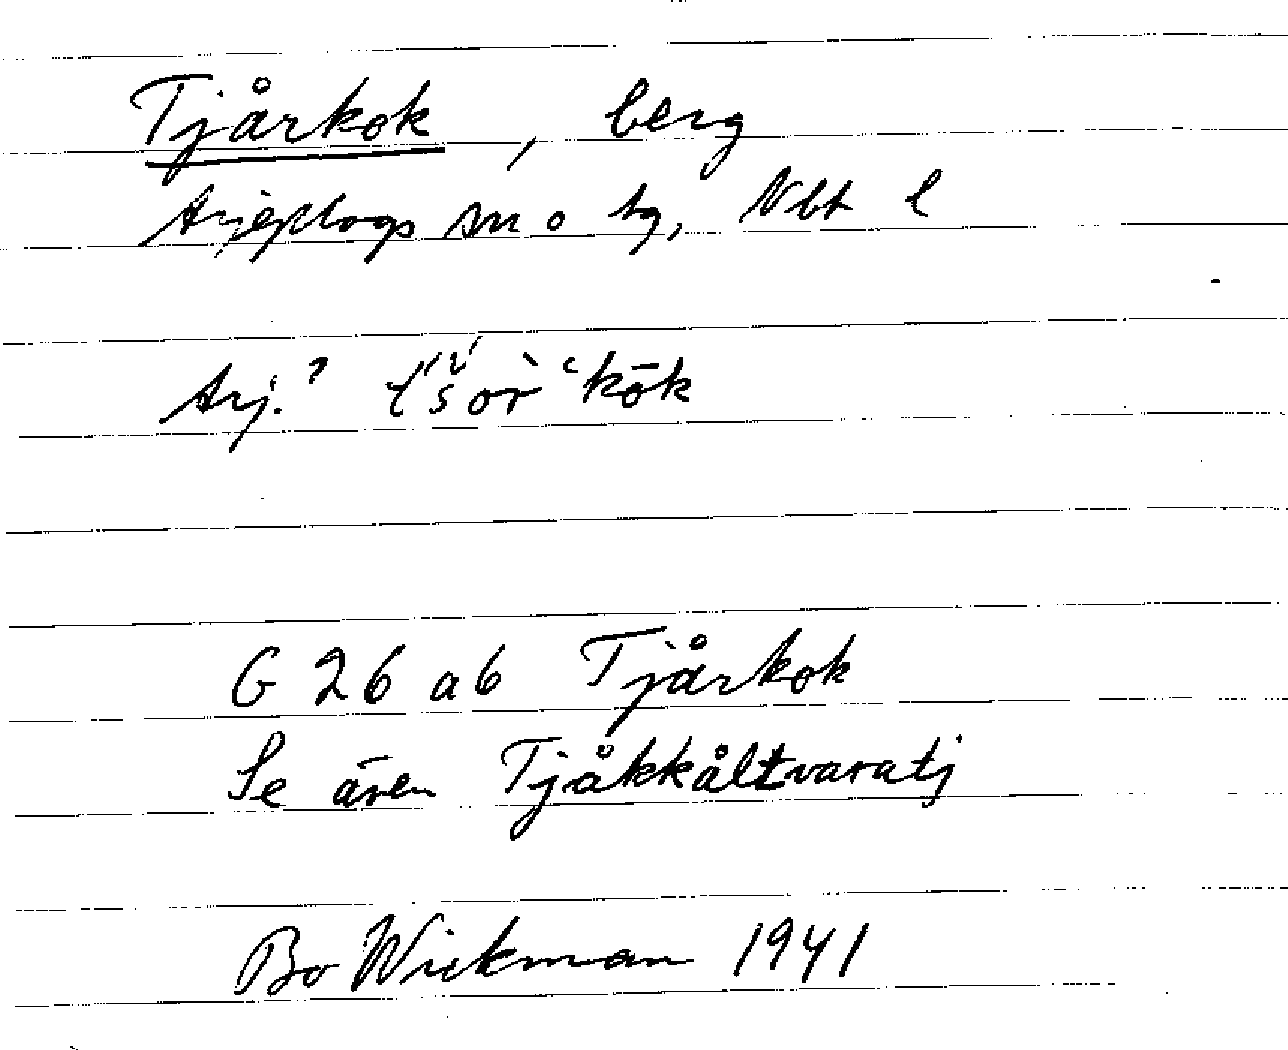 Tjårkok, berg
Arjeplogs sn o tg, Nbt l
Arj.
G 26 ab Tjårkok
Se även Tjåkkåltvaratj
Bo Wickman 1941